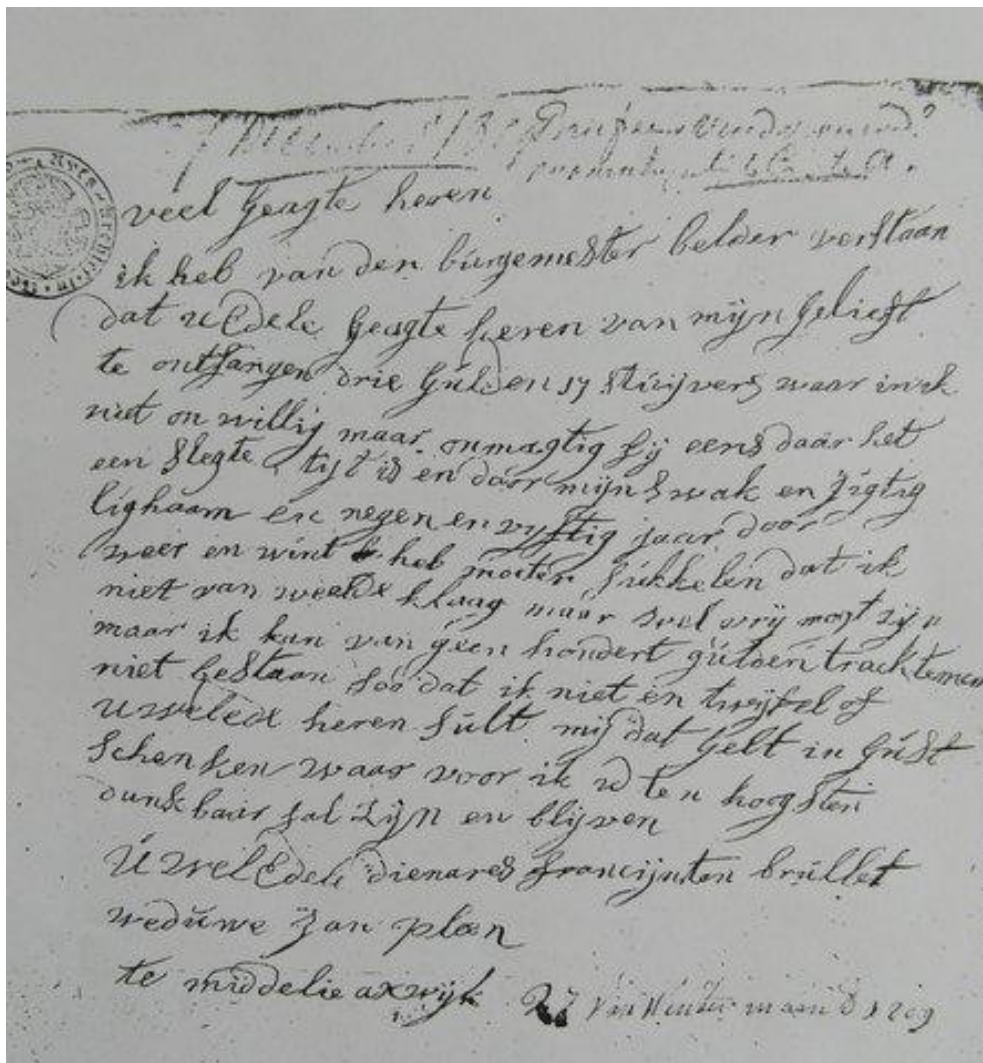 veel geagte heren
ik heb van den burgemester belder verstaan
dat uEdele geagte heren van mijn gelieft
te ontfangen drie gulden 17 stuijvers waar in ik
niet on willig maar onmagtig sij eens daar het
een slegte tijt is en door mijn swak en jigtig
lighaam en negen en vyftig jaar door
weer en wint heb moeten sukkelen dat ik
niet van weelde klaag maar wel vrij mogt zijn
maar ik kan van geen hondert gulden tracktemen
niet bestaan soo dat ik niet en twyfel of
uweled heren sult mij dat gelt in gust
schenken waar voor ik u ten hoogsten
dankbaar sal zijn en blijven
u wel Edele dienares francijnten brullet
weduwe jan plan
te middelie axwijk 27 van Winter maand 1809